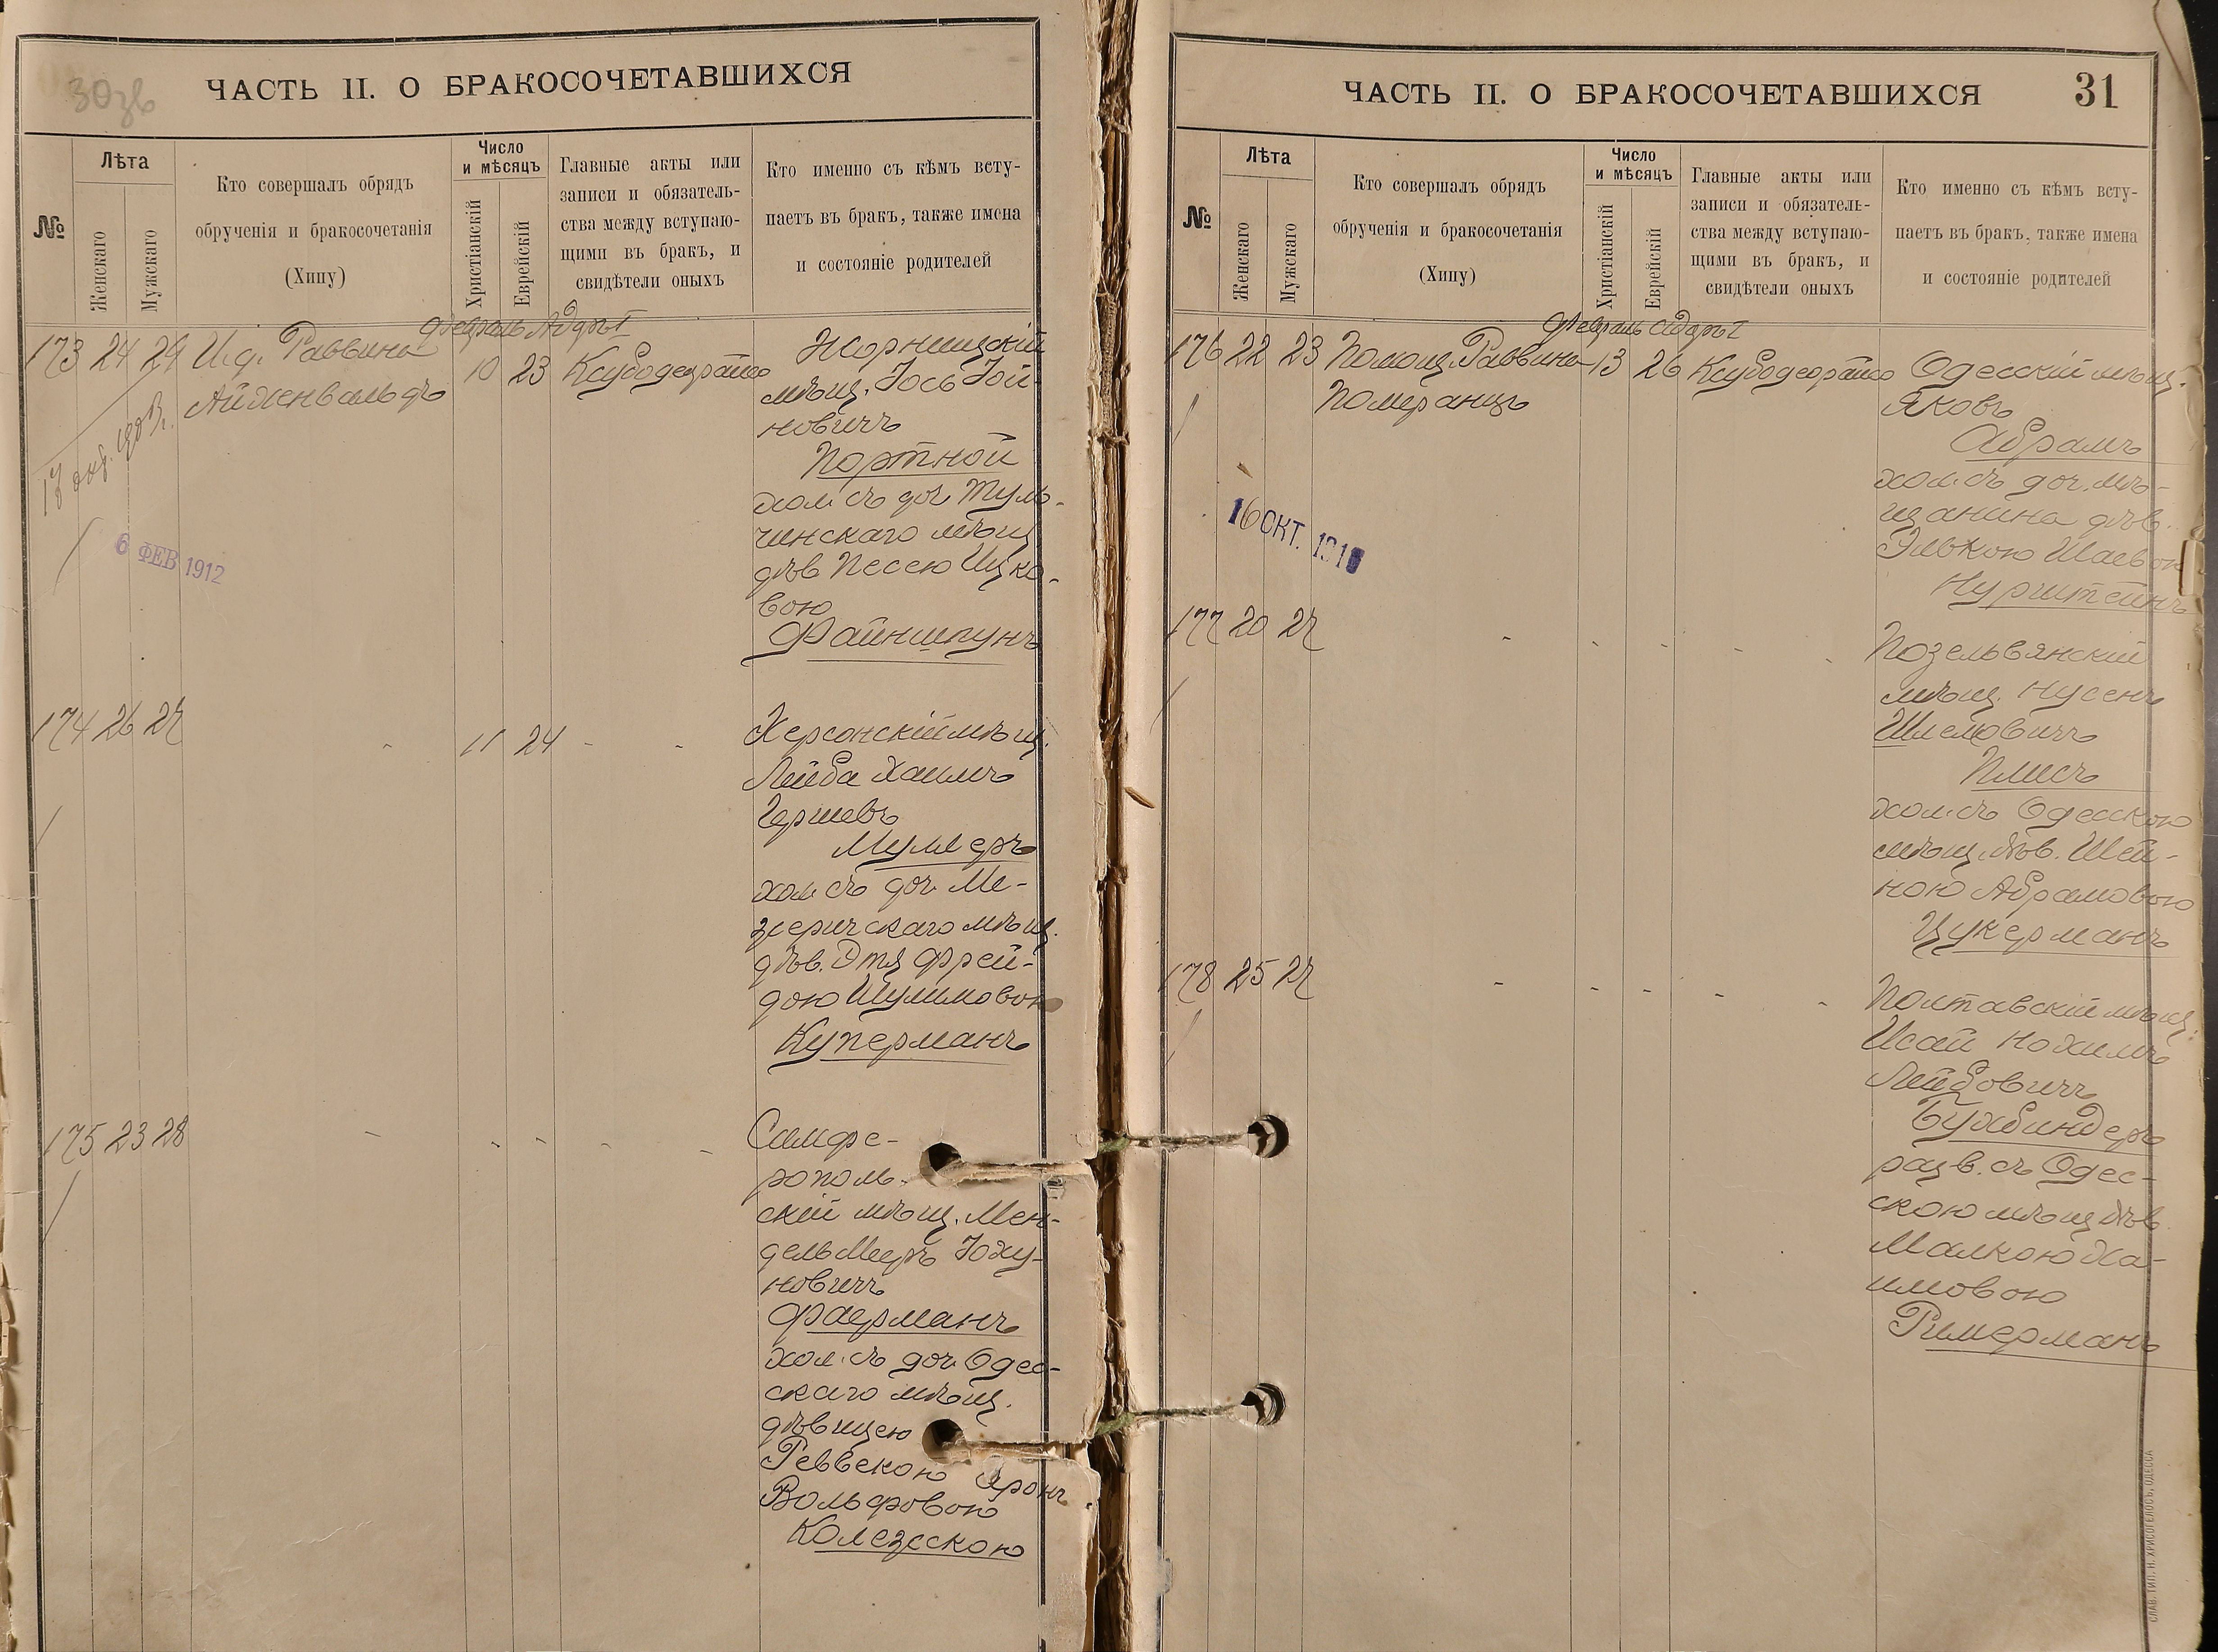 30зв
ЧАСТЬ II. О БРАКОСОЧЕТАВШИХСЯ
№
Лѣта
Женскаго
Мужскаго
Кто совершалъ обрядъ
обрученія и бракосочетанія
(Хипу)
Число
и мѣсяцъ
Христіанскій
Еврейскій
Главные акты или
записи и обязатель-
ства между вступаю-
щими въ бракъ, и
свидѣтели оныхъ
Кто именно съ кѣмъ всту-
паетъ въ бракъ, также имена
и состояніе родителей
Февраль Адаръ I
173 24 29 И. д. Раввина 10 23
Айженвальдъ
6 ФЕВ 1912
мѣщ. Іось Іой-
новичъ
Портной
хол. съ доч. Туль-
чинскаго мѣщ
дѣв Песею Ицко-
вою
Файншпунъ
174 26 27 - 11 24 - - Херсонскій мѣщ.
Лейба Хаимъ
Гершевъ
Муллеръ
хол. съ доч. Ме-
зеричскаго мѣщ.
дѣв. Этя Фрей-
дою Шулимовою
Куперманъ
175 23 28 - - - - - Симфе-
рополь-
скій мѣщ. Мен-
дель Мееръ Іоху-
новичъ
Фаерманъ
хол. съ доч. Одес-
скаго мѣщ.
дѣвицею
Реввекою Аронъ
Вольфовою
Колезсскою
ЧАСТЬ II. О БРАКОСОЧЕТАВШИХСЯ 31
№
Лѣта
Женскаго
Мужскаго
Кто совершалъ обрядъ
обрученія и бракосочетанія
(Хипу)
Число
и мѣсяцъ
Христіанскій
Еврейскій
Главные акты или
записи и обязатель-
ства между вступаю-
щими въ бракъ, и
свидѣтели оныхъ
Кто именно съ кѣмъ всту-
паетъ въ бракъ, также имена
и состояніе родителей
Февраль Адаръ I
176 22 23 Помощ. Раввина 13 26 Одесскій мѣщ.
Померанцъ
Яковъ
Абрамъ
хол. съ доч. мѣ-
щанина дѣв.
Элькою Шаевою
Нурштейнъ
16 ОКТ.
177 20 27 - - - - - Позельвянскій
мѣщ. Нусенъ
Шлемовичъ
Плисъ
хол. съ Одесскою
мѣщ. дѣв. Шей-
ною Абрамовою
Цукерманъ
178 25 27 - - - - - Полтавскій мѣщ.
Исай Нохимъ
Лейбовичъ
Бухбиндеръ
разв. съ Одес-
скою мѣщ. дѣв.
Малкою Ха-
имовою
Римерманъ
СЛАВ. ТИП. Н. ХРИСОГЕЛОСЪ, ОДЕССА